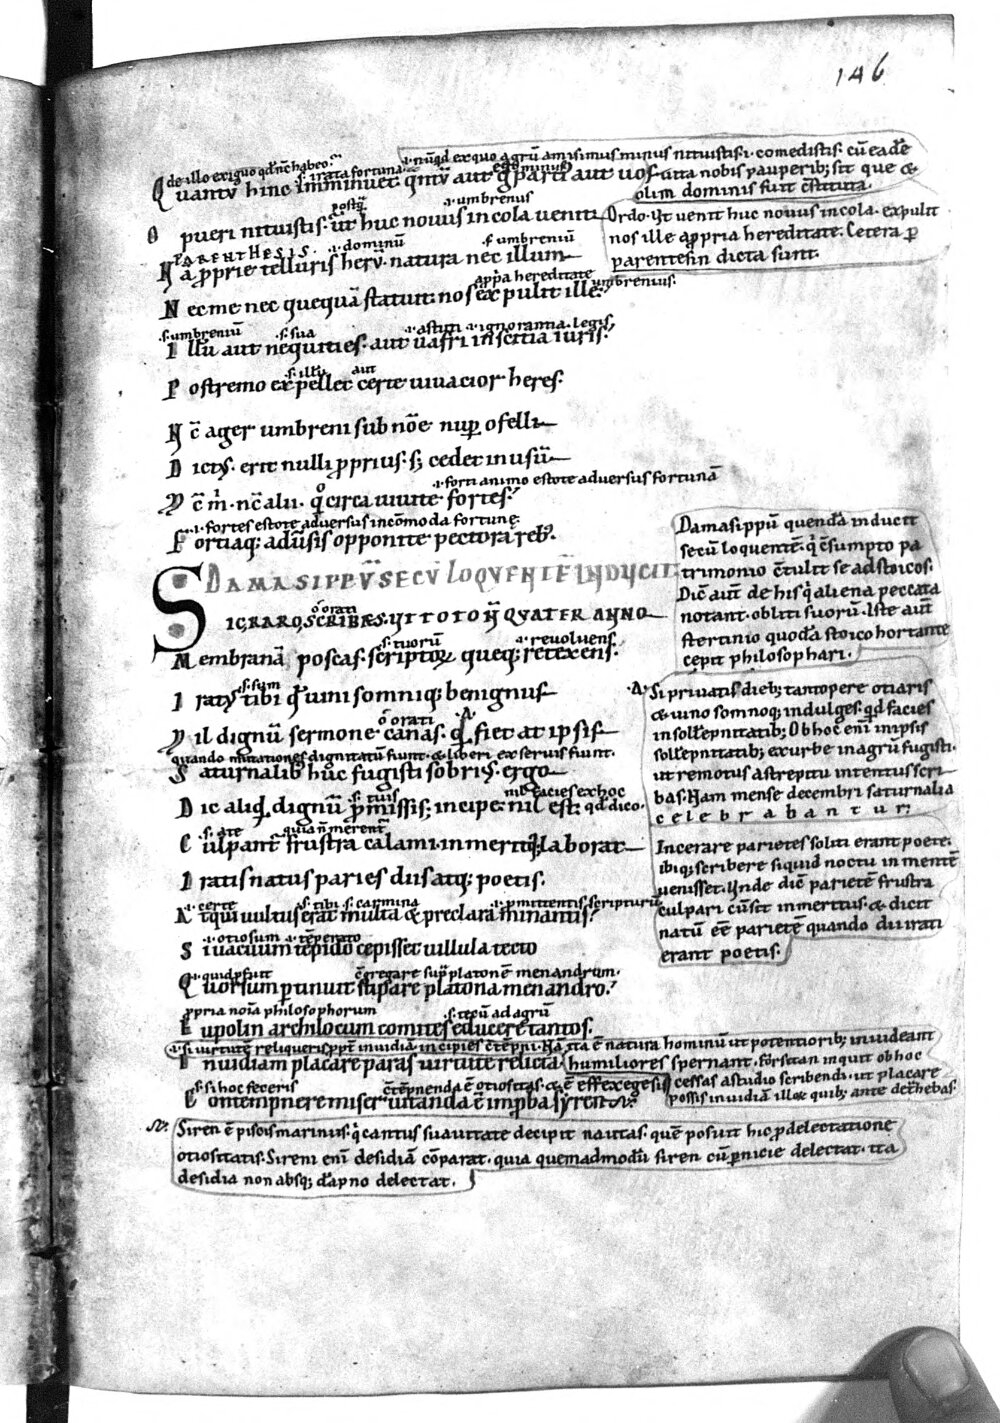 146
de illo exiguo qd nc habeo
.s. irata fortuna
.i. nūqd ex quo agrū amisimus minus nituistis .i. comedistis. cū eadē
uita nobis pauperib; sit que &
olim dominis fuit cstituta.
Quantū hinc imminuet qntū aut ego parci aut uos
postq̄
.i. umbrenus
O pueri nituistis. ut huc nouus incola uenit
Ordo. Vt uenit huc nouus incola. expulit
nos ille apropria hereditate. Cetera p
parentesin dicta sunt.
PARENTHESIS.
.i. dominū
.s. umbreniū
Nā proprie telluris herū natura nec illum
appa hereditate
umbrenius.
Nec me nec quequā statuit. nos expulit ille.
.s. umbreniū
.s. sua
.i. astuti
.i. ignorantia legis
Illū aut nequities. aut uafri inscitia iuris.
.s. illū
aut
Postremo expellet certe uiuacior heres.
Nc ager umbreni sub noe nup ofelli
Dictus. erit nulli prprius. s; cedet in usū
.i. forti animo estote adversus fortunā
Nc m. nc alii. qcirca uiuite fortes.
.i. fortes estote adversus incōmoda fortune
Fortiaq; aduersis opponite pectora reb;.
DAMASIPPŪ SECŪ LOQVENTĒ INDVCIT
Damasippū quendā inducit
secū loquentē. q csumpto pa
trimonio ctulit se ad stoicos.
Dic aut de his q aliena peccata
notant. obliti suorū. Iste aut
stertinio quodā stoico hortante
cepit philosophari.
o orati
SIC RARO SCRIBIS. VT TOTO N QVATER ANNO
.s. tuorū
.i. revoluens
Membranā poscas. scriptorū queq; retexens.
.s. sum
Iratus tibi q uini somniq; benignus
.A. Si privatis dieb; tantopere otiaris
& uino somnoq; indulges. qd facies
in sollepnitatib; Ob hoc eni in ipsis
sollēpnitatib; ex urbe in agrū fugisti.
ut remotus a strepitu intentus scri
bas. Nam mense decembri saturnalia
celebrabantur.
o orati
.A.
Nil dignū sermone canas. q fiet at ipsis
quando mutationes dignitatū fiunt. & liberi ex servis fiunt.
Saturnalib; huc fugisti sobrius. ergo
.s. tuis
nil facies ex hoc
Dic aliqd dignū pmissis; incipe. nil est.
qd dico.
.s. a te
quia n merent
Culpant frustra calami. inmeritusq; laborat
Incerare parietes soliti erant poete.
ibiq; scribere siquid noctu in mentē
uenisset. Vnde dic parietē frustra
culpari cū sit inmeritus. & dicit
natū eē parietē quando dii irati
erant poetis.
Iratis natus paries diis atq; poetis.
.i. certe
.s. tibi
.s. carmina
.i. pmittentis scripturū
Atqui uultus erat multa & preclara minantis.
.i. otiosum
.i. tēperato
Si uacuum tepido cepisset uillula tecto
.i. quid pfuit
cgregare sup platonē menandrum.
Quorsum ptinuit stipare platona menandro.
ppria noia philosophorum
.s. tecū ad agrū
Eupolin archilocum comites educere tantos.
.i. si uirtutē reliqueris ppt invidiā incipies ctēpni. Nā ita ē natura hominū ut potentiorib; invideant
humiliores spernant. forsitan inquit ob hoc
cessas a studio scribendi. ut placare
possis invidiā illoru quib; ante detrhebas.
Inuidiam placare paras uirtute relicta
.s. si hoc feceris
ctēpnenda ē otiositas. & ē effexegesis
Contempnere miser uitanda ē improba syren
Siren ē piscis marinus. q cantus suavitate decipit nautas. quē posuit hic p delectatione
otiositatis. Sireni eni desidiā cōparat. quia quemadmodū siren cū pnicie delectat. ita
desidia non absq; dapno delectat.